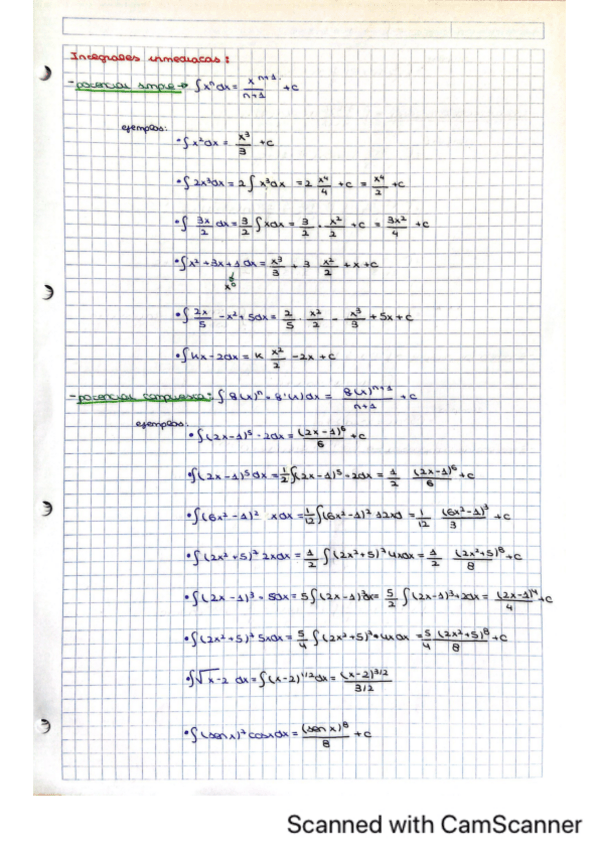 Integrales inmediatas:
- potencial simple → ∫xⁿdx = xⁿ⁺¹/n+1 + c
ejemplos:
• ∫x²dx = x³/3 + c
• ∫2x³dx = 2∫x³dx = 2 x⁴/4 + c = x⁴/2 + c
• ∫3x/2 dx = 3/2 ∫xdx = 3/2 · x²/2 + c = 3x²/4 + c
• ∫x² + 3x + 1 dx = x³/3 + 3 x²/2 + x + c
x⁰
• ∫2x/5 - x² + 5dx = 2/5 · x²/2 - x³/3 + 5x + c
• ∫Kx - 2dx = K x²/2 - 2x + c
- potencial compuesta: ∫f(x)ⁿ · f'(x)dx = f(x)ⁿ⁺¹/n+1 + c
ejemplos:
• ∫(2x-1)⁵ · 2dx = (2x-1)⁶/6 + c
• ∫(2x-1)⁵dx = 1/2 ∫(2x-1)⁵ · 2dx = 1/2 (2x-1)⁶/6 + c
• ∫(6x²-1)² xdx = 1/12 ∫(6x²-1)² 12xd = 1/12 (6x²-1)³/3 + c
• ∫(2x²+5)⁷ 2xdx = 1/2 ∫(2x²+5)⁷ 4xdx = 1/2 (2x²+5)⁸/8 + c
• ∫(2x-1)³ · 5dx = 5∫(2x-1)³dx = 5/2 ∫(2x-1)³ · 2dx = (2x-1)⁴/4 + c
• ∫(2x²+5)⁷ 5xdx = 5/4 ∫(2x²+5)⁷ · 4xdx = 5/4 (2x²+5)⁸/8 + c
• ∫√x-2 dx = ∫(x-2)^1/2 dx = (x-2)^3/2 / 3/2
• ∫(sen x)⁷ cosxdx = (sen x)⁸/8 + c
Scanned with CamScanner